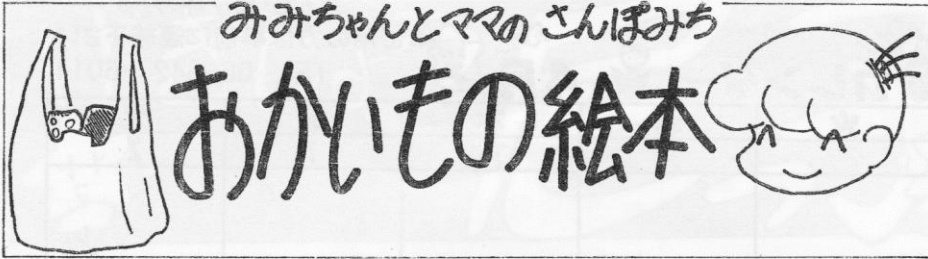 みみちゃんとママの さんぽみち
おかいもの絵本